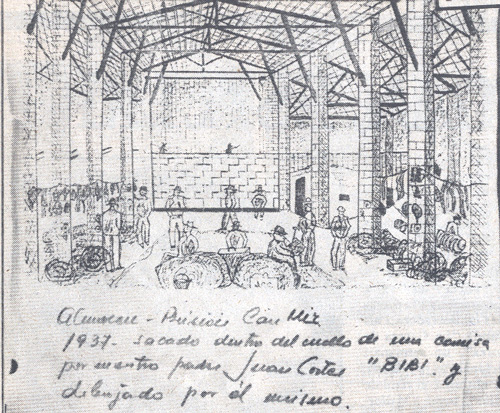 Almacen - Prisión Can Mir
1937- sacado dentro del cuello de una camisa
por nuestro padre, Juan Cortes "BIBI". y
dibujado por él mismo.